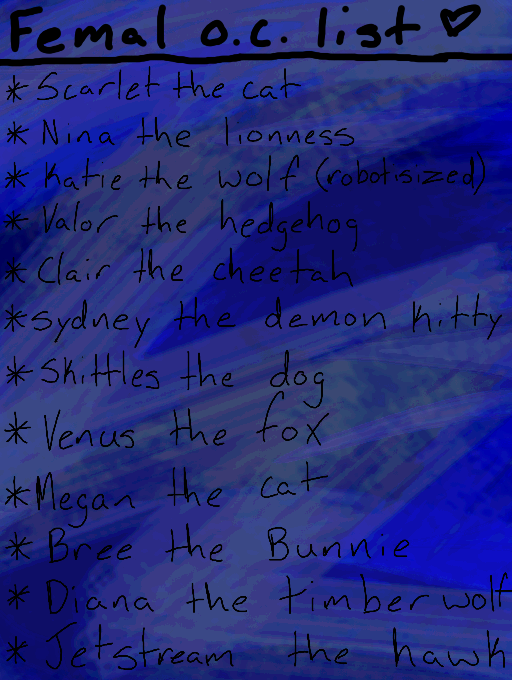 Femal o.c. list ♡
* Scarlet the cat
* Nina the lionness
* Katie the wolf (robotisized)
* Valor the hedgehog
* Clair the cheetah
* sydney the demon kitty
* Skittles the dog
* Venus the fox
* Megan the cat
* Bree the Bunnie
* Diana the timber wolf
* Jetstream the hawk